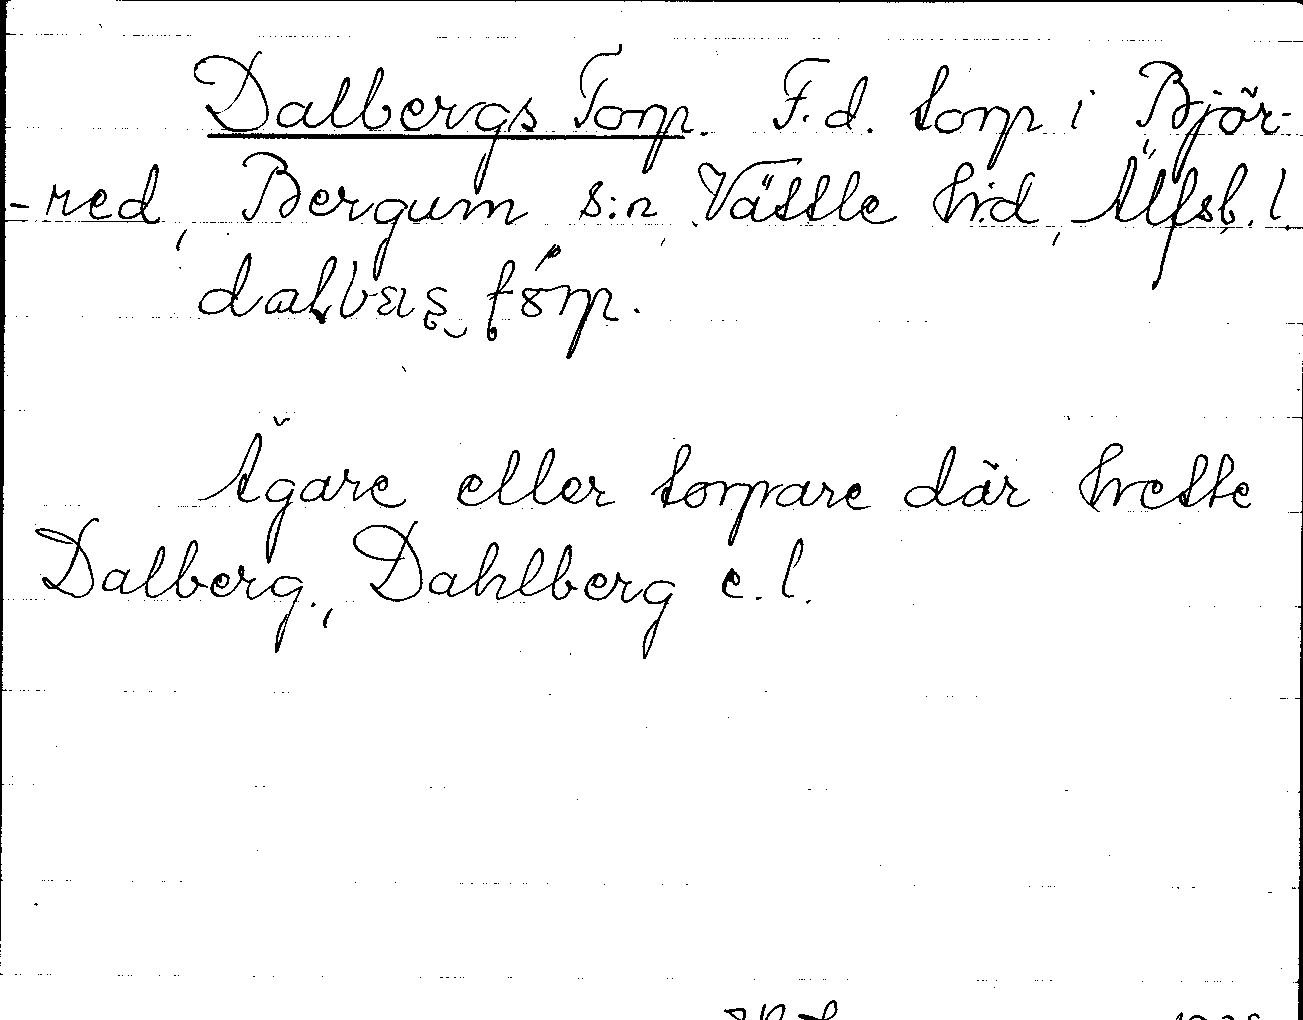 Dalbergs Torp. F.d. torp i Björ-
-red, Bergum s:n, Vättle h:d, Älfsb. l.
Ägare eller torpare där hette
Dalberg, Dahlberg e.l.